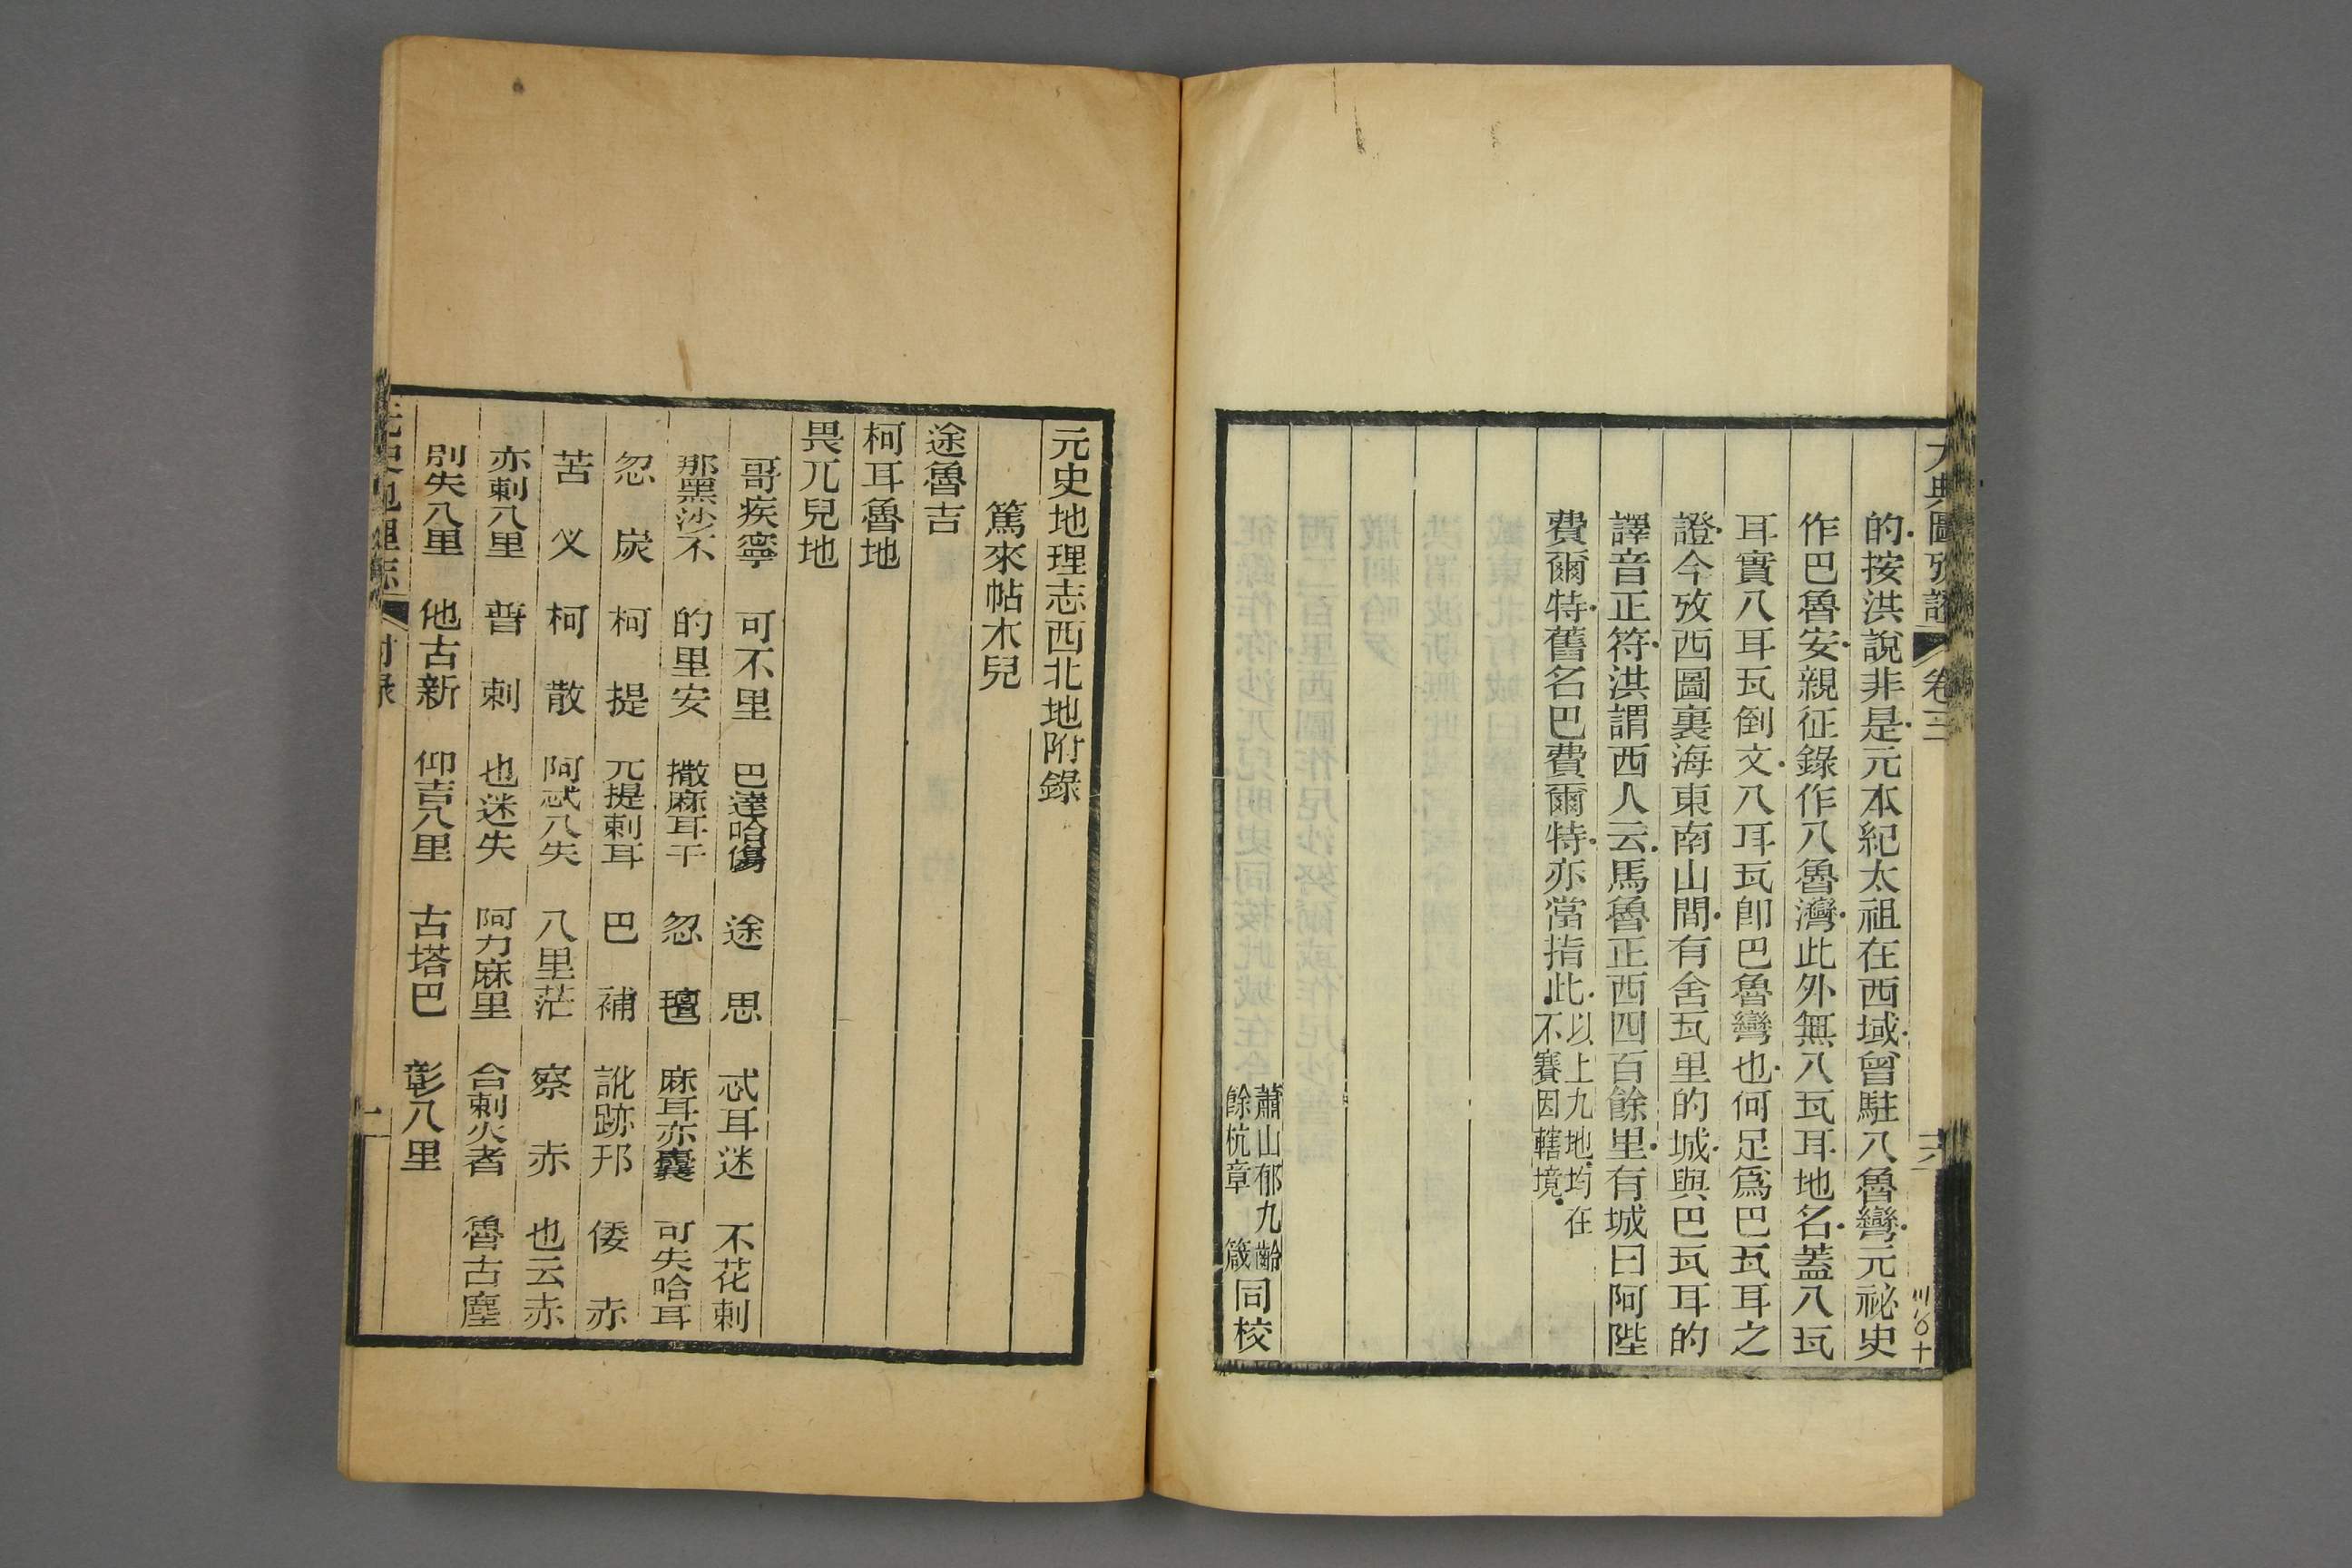 大典圖攷證 卷三 六
的按洪說非是元本紀太祖在西域曾駐八魯彎元祕史
作巴魯安親征錄作八魯灣此外無八瓦耳地名蓋八瓦
耳實八耳瓦倒文八耳瓦卽巴魯彎也何足爲巴瓦耳之
證今攷西圖裏海東南山間有舍瓦里的城與巴瓦耳的
譯音正符洪謂西人云馬魯正西四百餘里有城曰阿陛
費爾特舊名巴費爾特亦當指此
以上九地均在
不賽因轄境
蕭山郁九齡
餘杭章 箴
同校
元史地理志西北地附錄
篤來帖木兒
途魯吉
柯耳魯地
畏兀兒地
哥疾寧 可不里 巴達哈傷 途思 忒耳迷 不花剌
那黑沙不 的里安 撒麻耳干 忽氊 麻耳亦囊 可失哈耳
忽炭 柯提 兀提剌耳 巴補 訛跡邗 倭赤
苦叉 柯散 阿忒八失 八里茫 察赤 也云赤
亦剌八里 普剌 也迷失 阿力麻里 合剌火者 魯古塵
別失八里 他古新 仰吉八里 古塔巴 彰八里
元史地理志 附錄 一